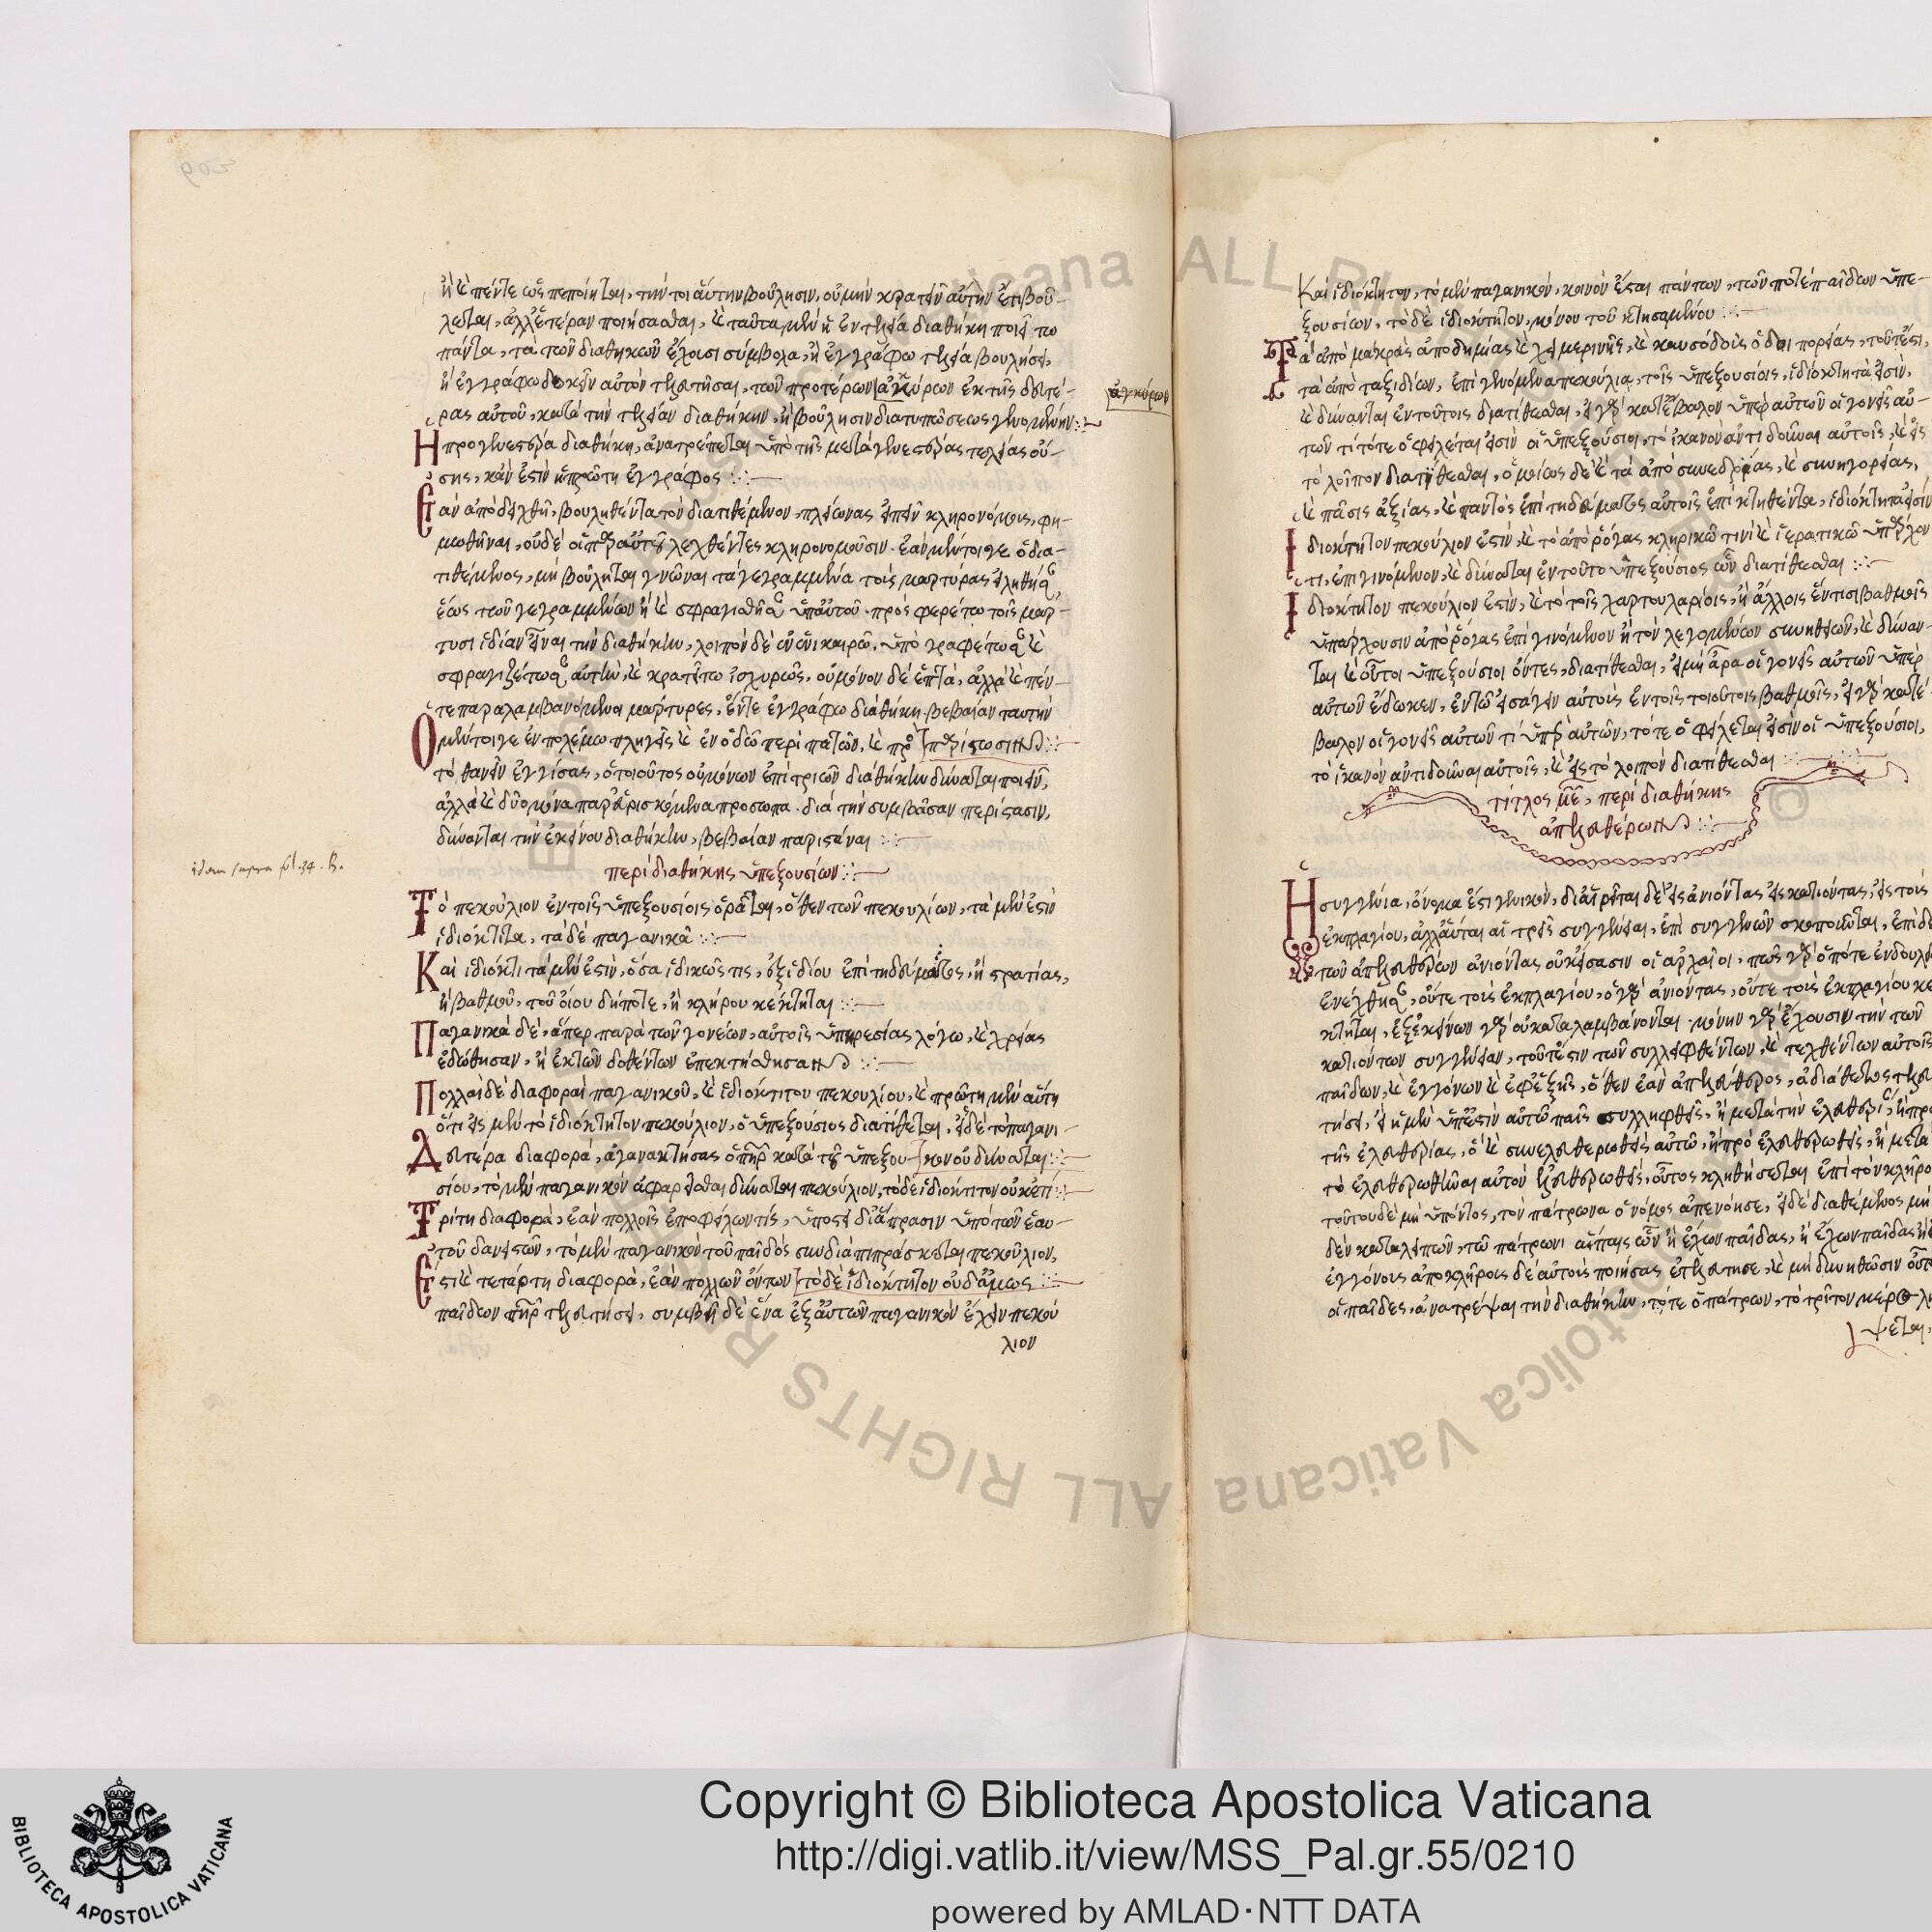 ἢ καὶ πέντε ὡς πεποίηται, τὴν τοιαύτην βούλησιν, οὐ μὴν κρατεῖν αὐτὴν ἔτι βού-
λεται, ἀλλ' ἑτέραν ποιήσασθαι, καὶ ταῦτα μὲν ἢ ἐν τελεία διαθήκη ποιεῖ τω
πάντα, τὰ τῶν διαθηκῶν ἔχουσι σύμβολα, ἢ ἐγγράφω τελεία βουλήσει,
ἢ ἐγγράφω δοκεῖν αὐτὸν τελευτῆσαι, τῶν προτέρων ἀκύρων ἐκ τῆς δευτέ-
ρας αὐτοῦ, κατὰ τὴν τελείαν διαθήκην, ἢ βούλησιν διατυπώσεως γενομένην
ἀγκύρων
Ἡ προγενεστέρα διαθήκη, ἀνατρέπεται ὑπὸ τῆς μεταγενεστέρας τελείας οὔ-
σης, κἂν ἐστὶν ἡ πρώτη ἐγγράφος
Ἐὰν ἀποδειχθῆ, βουληθέντα τὸν διατιθέμενον, πλείωνας εἰπεῖν κληρονόμους,
μωθῆναι, οὐδὲ οἱ παρ' αὐτοῦ λεχθέντες κληρονομοῦσιν. ἐὰν μέντοιγε ὁ δια-
τιθέμενος, μὴ βούληται γνῶναι τὰ γεγραμμένα τοὺς μάρτυρας
ἕως τῶν γεγραμμένων ἢ καὶ ὑπ' αὐτοῦ. προσφερέτω τοῖς μάρ-
τυσι ἰδίαν εἶναι τὴν διαθήκην, λοιπὸν δὲ ἐν ἑνὶ καιρῶ, ὑπογραφέτωσαν καὶ
σφραγιζέτωσαν αὐτὴν, καὶ κρατείτω ἰσχυρῶς, οὐ μόνον δὲ ἑπτὰ, ἀλλὰ καὶ πέν-
τε παραλαμβανόμενοι μάρτυρες, ἔν τε ἐγγράφω διαθήκη βεβαίαν ταυτὴν
Ὁ μέντοιγε ἐν πολέμω πληγεὶς καὶ ἐν ὁδῶ περιπατῶν, καὶ πρὸ παρίστωσιν
τὸ θανεῖν ἐγγίσας, ὁ τοιοῦτος οὐ μόνων ἐπὶ τριῶν διαθήκην δύναται ποιεῖν,
ἀλλὰ καὶ δύο μόνα παρευρισκόμενα προσωπα. διὰ τὴν συμβᾶσαν περίστασιν,
δύνανται τὴν ἐκείνου διαθήκην, βεβαίαν παριστάναι
περὶ διαθήκης ὑπεξουσίων
Τὸ πεκούλιον ἐν τοῖς ὑπεξουσίοις ὁρᾶται, ὅθεν τῶν πεκουλίων, τὰ μὲν ἐστὶν
ἰδιόκτιτα, τὰ δὲ παγανικὰ
Καὶ ἰδιόκτιτα μὲν ἐστὶν, ὅσα ἰδικῶς τις, ἐξ ἰδίου ἐπιτηδεύματος, ἢ στρατίας,
ἢ βαθμοῦ, τοῦ οἵου δήποτε, ἢ κλήρου κέκτηται
Παγανικὰ δὲ, ἅπερ παρὰ τῶν γονέων, αὐτοῖς ὑπηρεσίας λόγω, καὶ χρείας
ἐδώθησαν, ἢ ἐκ τῶν δοθέντων ἐπεκτήθησαν
Πολλαὶ δὲ διαφοραὶ παγανικοῦ, καὶ ἰδιόκτιτου πεκουλίου, καὶ πρώτη μὲν αὕτη
ὅτι εἰς μὲν τὸ ἰδιόκτητον πεκούλιον, ὁ ὑπεξούσιος διατίθεται, εἰ δὲ τὸ παγανι-
Δευτέρα διαφορὰ, ἀγανακτήσας ὁ πατὴρ κατὰ τοῦ ὑπεξου- κον οὐ δύναται
σίου, τὸ μὲν παγανικὸν ἀφαρεῖσθαι δύναται πεκούλιον, τὸ δὲ ἰδιόκτιτον οὐκέτι
Τρίτη διαφορὰ, ἐὰν πολλοῖς ἐποφείλων τίς, ὑποστεῖ διάπρασιν ὑπὸ τῶν ἑαυ-
τοῦ δανειστῶν, τὸ μὲν παγανικὸν τοῦ παιδὸς συνδιαπιπράσκεται πεκούλιον,
Ἔστι καὶ τετάρτη διαφορὰ, ἐὰν πολλῶν ὄντων τὸ δὲ ἰδιόκτητον οὐδάμως
παίδων πατὴρ τελευτήσει, συμβῆ δὲ ἕνα ἐξ αὐτῶν παγανικὸν ἔχειν πεκού
λιον
idem supra fol. 34. B.
Καὶ ἰδιόκτητον, τὸ μὲν παγανικὸν, κοινὸν ἔσται πάντων, τῶν ποτὲ παίδων ὑπε-
ξουσίων, τὸ δὲ ἰδιόκτητον, μόνου τοῦ κτησαμένου
Τὰ ἀπὸ μακρὰς ἀποδημίας καὶ χειμερινῆς, καὶ καυσόδους ὁδοιπορίας, τουτέστι,
τὰ ἀπὸ ταξιδίων, ἐπιγενόμενα πεκούλια, τοῖς ὑπεξουσίοις, ἰδιόκτητα εἰσὶν,
καὶ δύνανται ἐν τούτοις διατίθεσθαι, εἰ γὰρ κατέβαλον ὑπὲρ αὐτῶν οἱ γονεῖς αὐ-
τῶν τί τότε ὀφείλεται εἰσὶν οἱ ὑπεξούσιοι, τὸ ἱκανὸν ἀντιδοῦναι αὐτοῖς, καὶ εἰς
τὸ λοῖπον διατίθεσθαι, ὁμοίως δὲ καὶ τὰ ἀπὸ συνεδρίας, καὶ συνηγορίας,
καὶ πάσις ἀξίας, καὶ παντὸς ἐπιτηδεύματος αὐτοῖς ἐπικτηθέντα, ἰδιόκτητα εἰσὶν
Ἰδιόκτητον πεκούλιον ἐστὶν, καὶ τὸ ἀπὸ ῥόγας κληρικῶ τινὶ καὶ ἱερατικῶ ὑπάρχον
τι, ἐπιγινόμενον, καὶ δύναται ἐν τοῦτο ὑπεξούσιος ὢν διατίθεσθαι
Ἰδιόκτητον πεκούλιον ἐστὶν, καὶ τὸ τοῖς χαρτουλαρίοις, ἢ ἄλλοις ἔν τισι βαθμοῖς
ὑπάρχουσιν ἀπὸ ῥόγας ἐπιγινόμενον ἢ τὸν λεγομένων συνηθειῶν, καὶ δύναν-
ται καὶ οὗτοι ὑπεξούσιοι ὄντες, διατίθεσθαι, εἰ μὴ ἄρα οἱ γονεῖς αὐτῶν ὑπὲρ
αὐτῶν ἔδωκεν, ἐν τῶ εἰσάγειν αὐτοὺς ἐν τοῖς τοιούτοις βαθμοῖς, εἰ γὰρ κατέ-
βαλον οἱ γονεῖς αὐτῶν τὶ ὑπὲρ αὐτῶν, τότε ὀφείλεται εἰσὶν οἱ ὑπεξούσιοι,
τὸ ἱκανὸν ἀντιδοῦναι αὐτοῖς, καὶ εἰς τὸ λοιπὸν διατίθεσθαι
τίτλος με, περὶ διαθήκης
ἀπελευθέρων
Ἡ συγγένια, ὄνομα ἐστὶ γενικὸν, διαιρεῖται δὲ εἰς ἀνιόντας εἰς κατιόντας, εἰς τοὺς
ἐκπλαγίου, ἀλλ' αὗται αἱ τρεῖς συγγένειαι, ἐπὶ συγγενῶν σκοποῦνται, ἐπὶ δὲ
τῶν ἀπελευθέρων ἀνιόντας οὐκ εἴασιν οἱ ἀρχαῖοι, πῶς γὰρ ὁπότε
οὔτε τοὺς ἐκπλαγίου, ὁ γὰρ ἀνιόντας, οὔτε τοὺς ἐκπλαγίου κέ
κτηται, ἐξ ἐκείνων γὰρ οὐ καταλαμβάνονται. μόνην γὰρ ἔχουσιν τὴν τῶν
κατιόντων συγγένειαν, τουτέστιν τῶν συλληφθέντων, καὶ τεχθέντων αὐτοῖς
παίδων, καὶ ἐγγόνων καὶ ἐφεξῆς, ὅθεν ἐὰν ἀπελεύθερος, ἀδιάθετος τελευ
τήσει, εἰ μὲν ὕπεστιν αὐτῶ παῖς συλληφθεὶς, ἢ μετὰ τὴν ἐλευθερίαν, ἢ πρὸ
τῆς ἐλευθερίας, ὁ καὶ συνελευθερωθεὶς αὐτῶ, ἢ πρὸ ἐλευθερωθεὶς, ἢ μετὰ
τὸ ἐλευθερωθῆναι αὐτὸν ἐλευθερωθεὶς, οὗτος κληθήσεται ἐπὶ τὸν κλῆρο
τούτου δὲ μὴ ὑπόντος, τὸν πάτρωνα ὁ νόμος ἀπενόησε, εἰ δὲ διαθέμενος μὴ
δὲν καταλειπῶν, τῶ πάτρωνι ἄπαις ὢν ἢ ἔχων παῖδας, ἢ ἔχων παῖδας ἢ
ἐγγόνους ἀποκλήρους δὲ αὐτοὺς ποιήσας ἐτελευτησε, καὶ μὴ δυνηθῶσιν
οἱ παῖδες, ἀνατρέψαι τὴν διαθήκην, τότε ὁ πάτρων, τὸ τρίτον μέρος λή
ψεται,
ALL RIGHTS
Biblioteca Apostolica Vaticana
Copyright © Biblioteca Apostolica Vaticana
http://digi.vatlib.it/view/MSS_Pal.gr.55/0210
powered by AMLAD·NTT DATA
BIBLIOTECA APOSTOLICA VATICANA